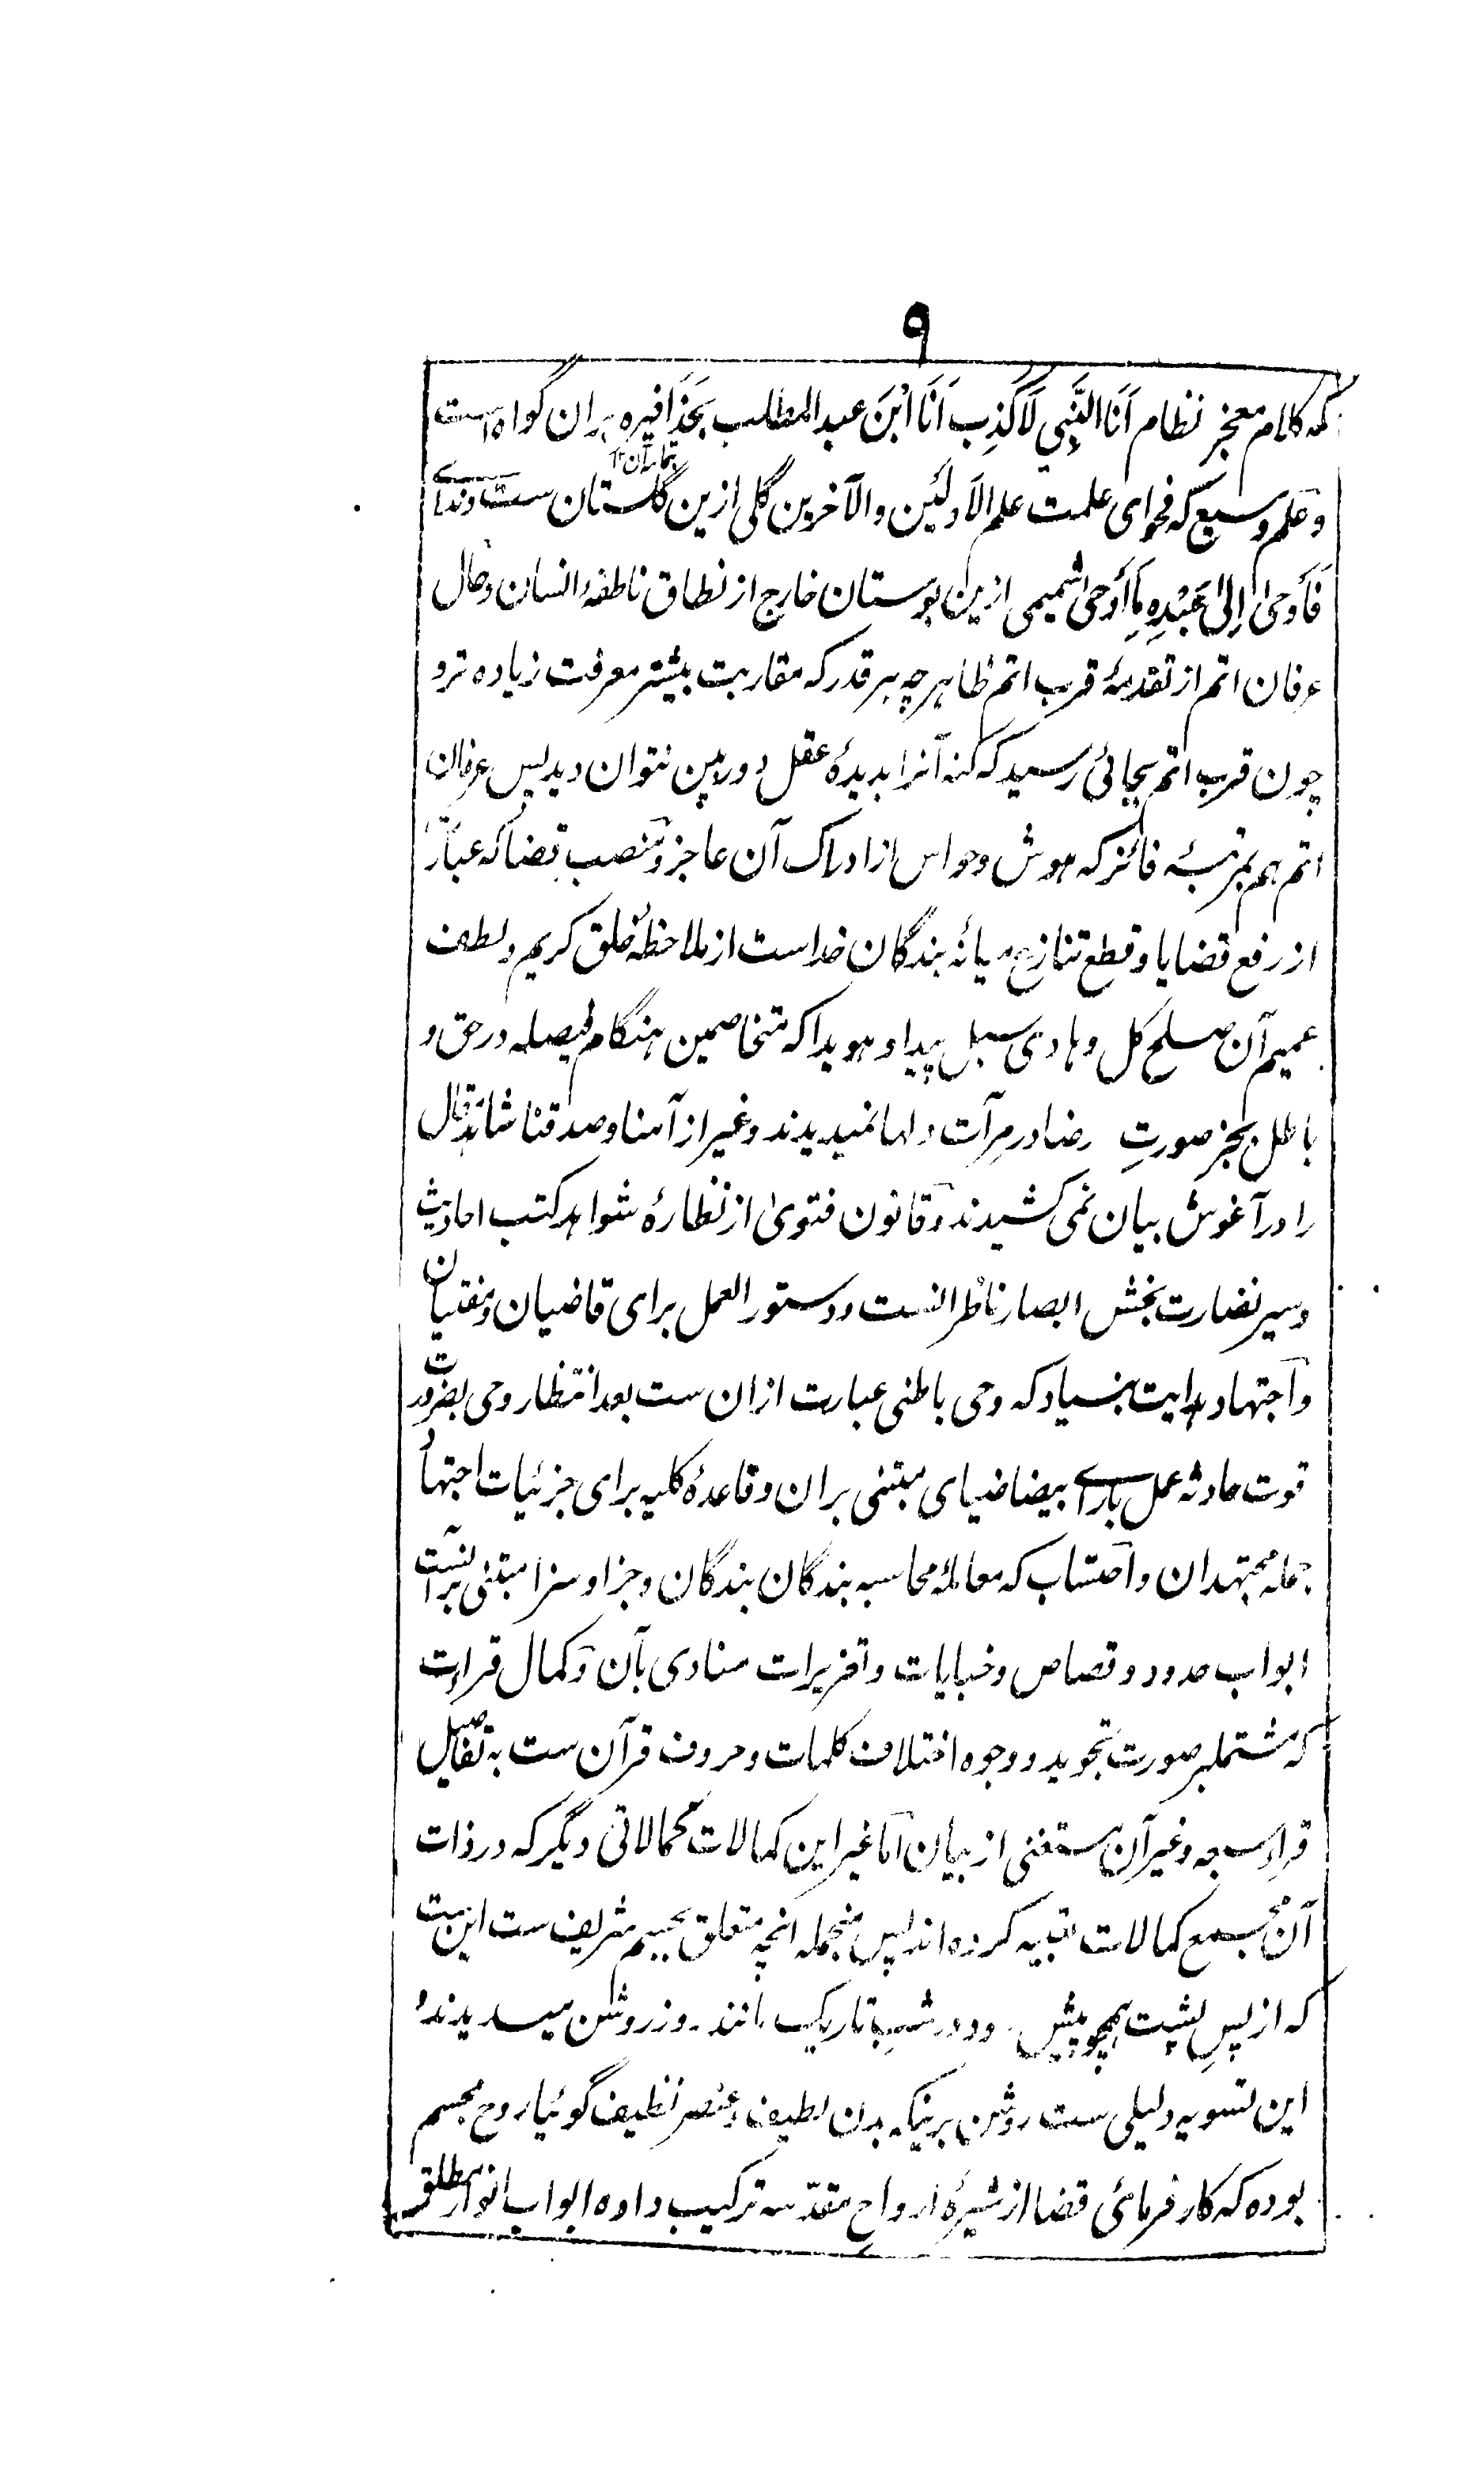 ۹
که کلام معجز نظام اَنَا النَّبِي لَا كَذِب اَنَا ابْنَ عبد المطلب بَحَذَافیره بران گواه است
بتمامه آن ۱۲
و علم وسیع که فحوای علمت علم الاولین والآخرین گلی ازین گلستان ست و ندای
فَأَوحىٰ اِلىٰ عَبْدِهِ مَا أَوحىٰ شمیمی ازین بوستان خارج از نطاق ناطقهٔ انسان و حال
عرفان اتم از تقدمهٔ قرب اتم ظاهر چه هر قدر که مقاربت بیشتر معرفت زیاده تر و
چون قرب اتم بجائی رسید که کنه آنرا بدیدهٔ عقل دوربین نتوان دید پس عرفان
اتم هم بمرتبهٔ فائز که هوش و حواس از ادراک آن عاجز و منصب قضا که عبارت
از رفع قضایا و قطع تنازع میانهٔ بندگان خداست از ملاحظهٔ خلق کریم و لطف
عمیم آن مصلح کل و هادی سبل پیدا و هویدا که متخاصمین هنگام فیصله در حق و
باطل بجز صورتِ رضا در مرآت دلها نمیدیدند و غیر از آمنا و صدقنا شاهد قال
را در آغوش بیان نمی کشیدند و قانون فتویٰ از نظارهٔ شواهد کتب احادیث
و سیر نضارت بخش ابصار ناظرانست و دستور العمل برای قاضیان و مفتیان
و اجتهاد هدایت بنیاد که وحی باطنی عبارت از ان ست بعد انتظار وحی بضرورت
فوت حادثه عمل بارای بیضا ضیای مبتنی بران و قاعدهٔ کلیه برای جزئیات اجتهاد
جمله مجتهدان و احتساب که معاملهٔ محاسبه بندگان بندگان و جزا و سزا مبتنی برانست
ابواب حدود و قصاص و جنایات و تعزیرات منادی بآن و کمال قرارت
که مشتملبر صورت تجوید و وجوه اختلاف کلمات و حروف قرآن ست به تفاصیل
قراء سبعه و غیر آن مستغنی از بیان اما غیر این کمالات کمالاتی دیگر که در ذات
آن مجمع کمالات تعبیه کرده اند پس منجمله انچه متعلق بجسم شریف ست این ست
که از پسِ پشت همچو پیش رو و در شب تاریک مانند روز روشن میدیدند و
این تسویه دلیلی ست روشن برینکه بدن لطیف و عنصر نظیف گوئیا روح مجسم
بوده که کارفرمائی قضا از شیرهٔ ارواح مقدسه ترکیب داده ابواب انوار مطلق